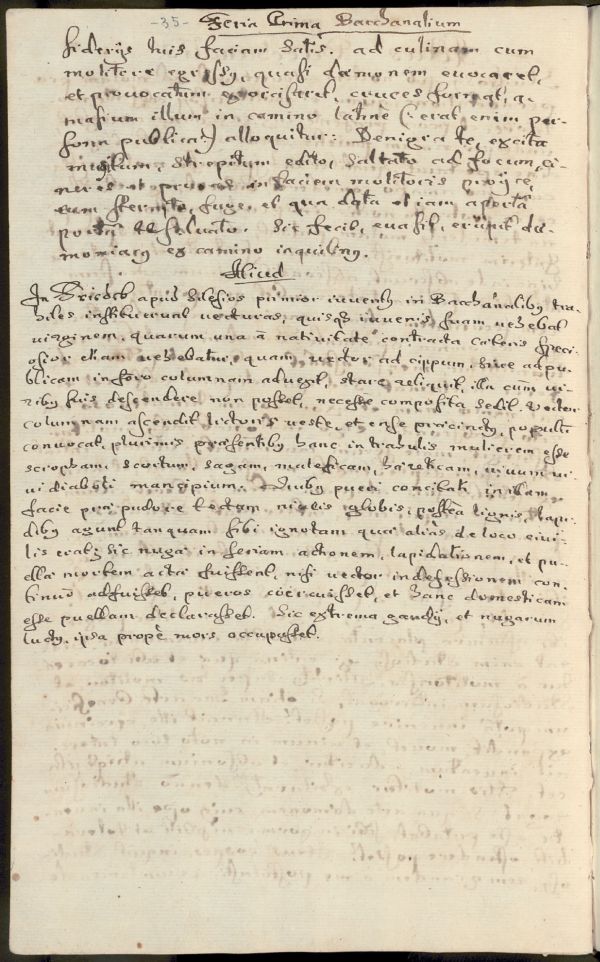 -35- Feria Prima Bacchanalium
siderijs tuis faciam satis. ad culinam cum
molitore egressus, quasi daemonem euocaret,
et prouocatum exorcisaret, cruces format, q.
masium illum in camino latine (: erat enim per-
sona publica :) alloquitur: Denigra te, excita
multum, strepitum edito, saltato ad focum, ci-
neres et prunas in faciem molitoris proijce,
eum sternito, fuge, et qua data et iam aperta
porta te saluato. Sic fecit, euasit, erupit dae-
moniacus ex camino inquilinus.
Aliud
In apud Silesios primior iuuentus in Bacchanalibus tra-
hiles instituerat uecturas, quisque iuuenis suam uehebat
uirginem, quarum una a natiuitate contracta caeteris speci-
osior etiam uehebatur, quam uector ad cippum, siue ad pu-
blicam in foro columnam aduexit, stare reliquit, illa cum ui-
ribus suis descendere non posset, necesse composita sedit. Vector
columnam ascendit lictoris ueste, et ense praecinctus, populum
conuocat, plurimis praesentibus hanc in trahulis mulierem esse
scropham, scortum, sagam, maleficam, haereticam, uiuum
diaboli mancipium. Quibus pueri concitati in illam
facie prae pudore tectam, niuis globis, postea lignis, lapi-
dibus agunt tanquam sibi ignotam quia alias de loco ciui-
lis erat; sic nuga in seriam actionem, lapidationem, et pu-
ella mortem acta fuissent, nisi uector in defessionem con-
tinuo adfuisset, pueros coercuisset, et hanc domesticam
esse puellam declarasset. Sic extrema gaudij, et nugarum
luctus, ipsa prope mors occupasset.